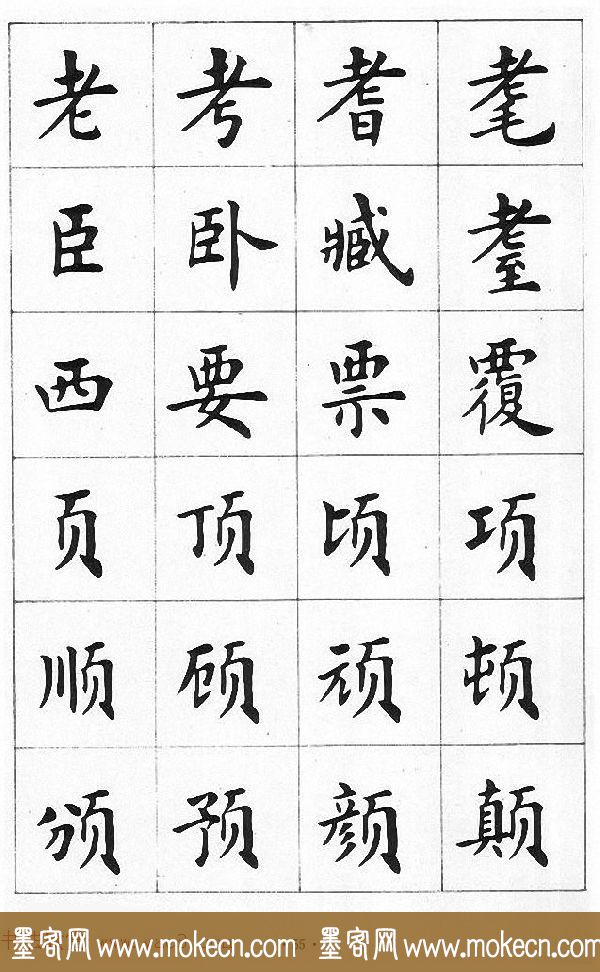 老 考 耆 耄
臣 卧 臧 耋
西 要 票 覆
页 顶 顷 项
顺 顾 顽 顿
颁 预 颜 颠
墨客网 www.mokecn.com 墨客网 www.mokecn.com